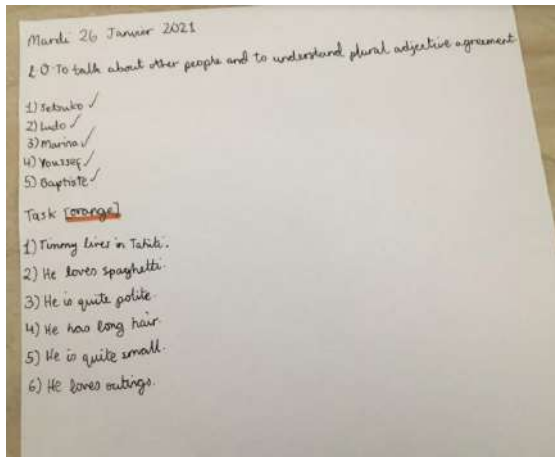 Mardi 26 Janvier 2021
L.O: To talk about other people and to understand plural adjective agreement
1) Setsuko ✓
2) Ludo ✓
3) Marina ✓
4) Youssef ✓
5) Baptiste ✓
Task [orange]
1) Timmy lives in Tahiti.
2) He loves spaghetti.
3) He is quite polite.
4) He has long hair.
5) He is quite small.
6) He loves outings.